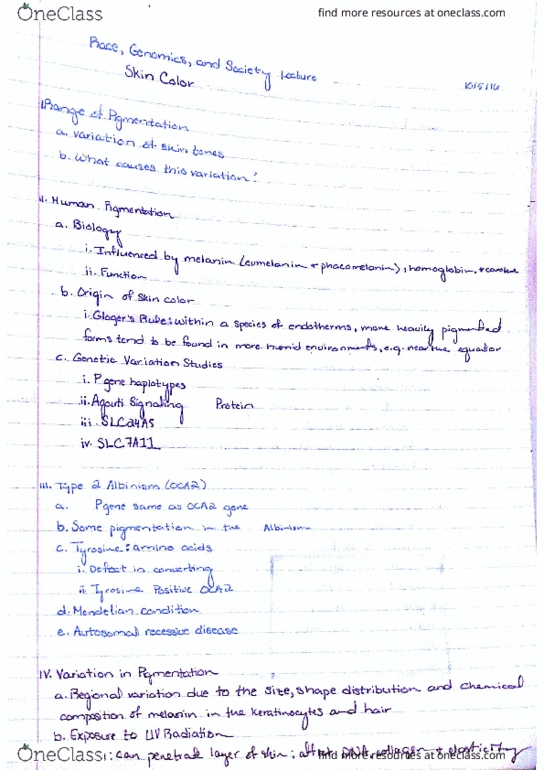 OneClass
find more resources at oneclass.com
Race, Genomics, and Society Lecture
Skin Color
10/5/16
I. Range of Pigmentation
a. variation of skin tones
b. What causes this variation?
II. Human Pigmentation
a. Biology
i. Influenced by melanin (eumelanin + phaeomelanin), hemoglobin, +
ii. Function
b. Origin of skin color
i. Gloger's Rule: within a species of endotherms, more heavily pigmented
forms tend to be found in more humid environments, e.g. near the equator
c. Genetic Variation Studies
i. P gene haplotypes
ii. Agouti Signaling Protein
iii. SLC24A5
iv. SLC7A11
III. Type 2 Albinism (OCA2)
a. P gene same as OCA2 gene
b. Some pigmentation in the Albinism
c. Tyrosine: amino acids
i. Defect in converting
ii. Tyrosine Positive OCA2
d. Mendelian condition
e. Autosomal recessive disease
IV. Variation in Pigmentation
a. Regional variation due to the size, shape distribution and chemical
composition of melanin in the keratinocytes and hair
b. Exposure to UV Radiation
i: can penetrate layer of skin; DNA, collagen + elasticity
OneClass
find more resources at oneclass.com